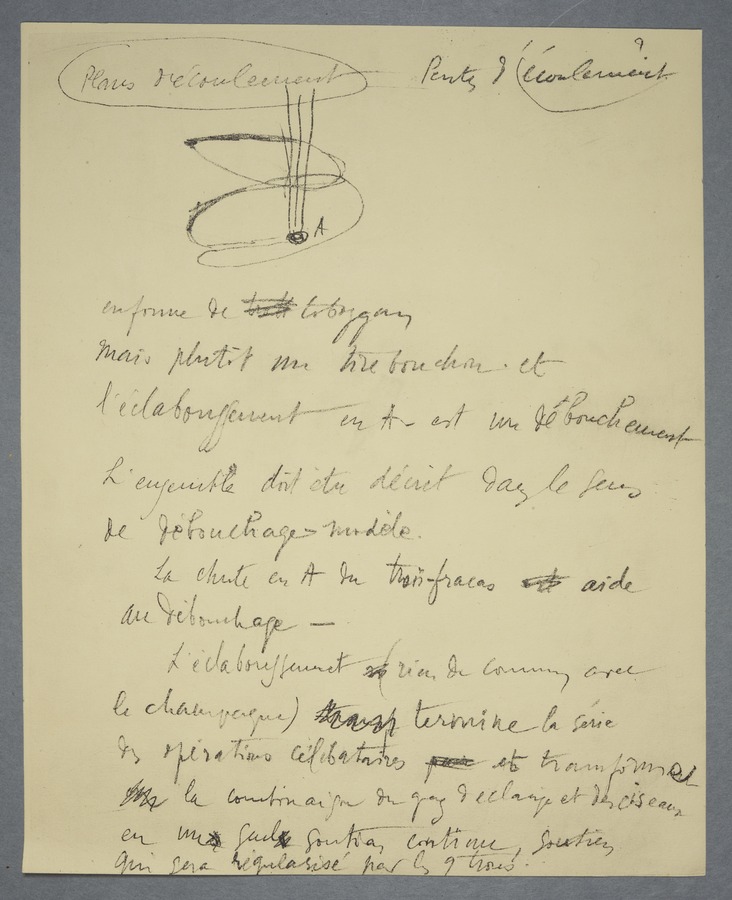 Plans d'écoulement — Pentes d'écoulement ?
A
en forme de toboggan
mais plutôt un tire bouchon. et
l'éclaboussement en A – est un débouchement
L'ensemble doit être décrit dans le sens
de débouchage – modèle.
La chute en A du trois-fracas aide
au débouchage –
L'éclaboussement (rien de commun avec
le champagne) termine la série
des opérations célibataires et transforme
la combinaison du gaz d'éclairage et des ciseaux
en un seul soutien continu, soutien
qui sera régularisé par les 9 trous.